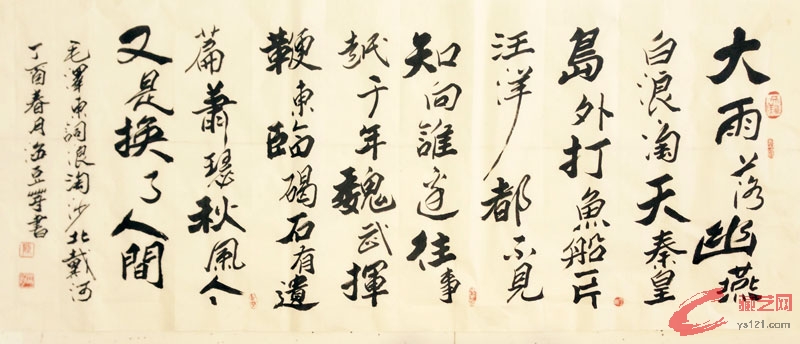 大雨落幽燕
白浪淘天秦皇
島外打魚船一片
汪洋都不見
知向誰邊往事
越千年魏武揮
鞭東臨碣石有遺
篇蕭瑟秋風今
又是換了人間
毛澤東詞浪淘沙北戴河
丁酉春月海書
艺网
ys121.com